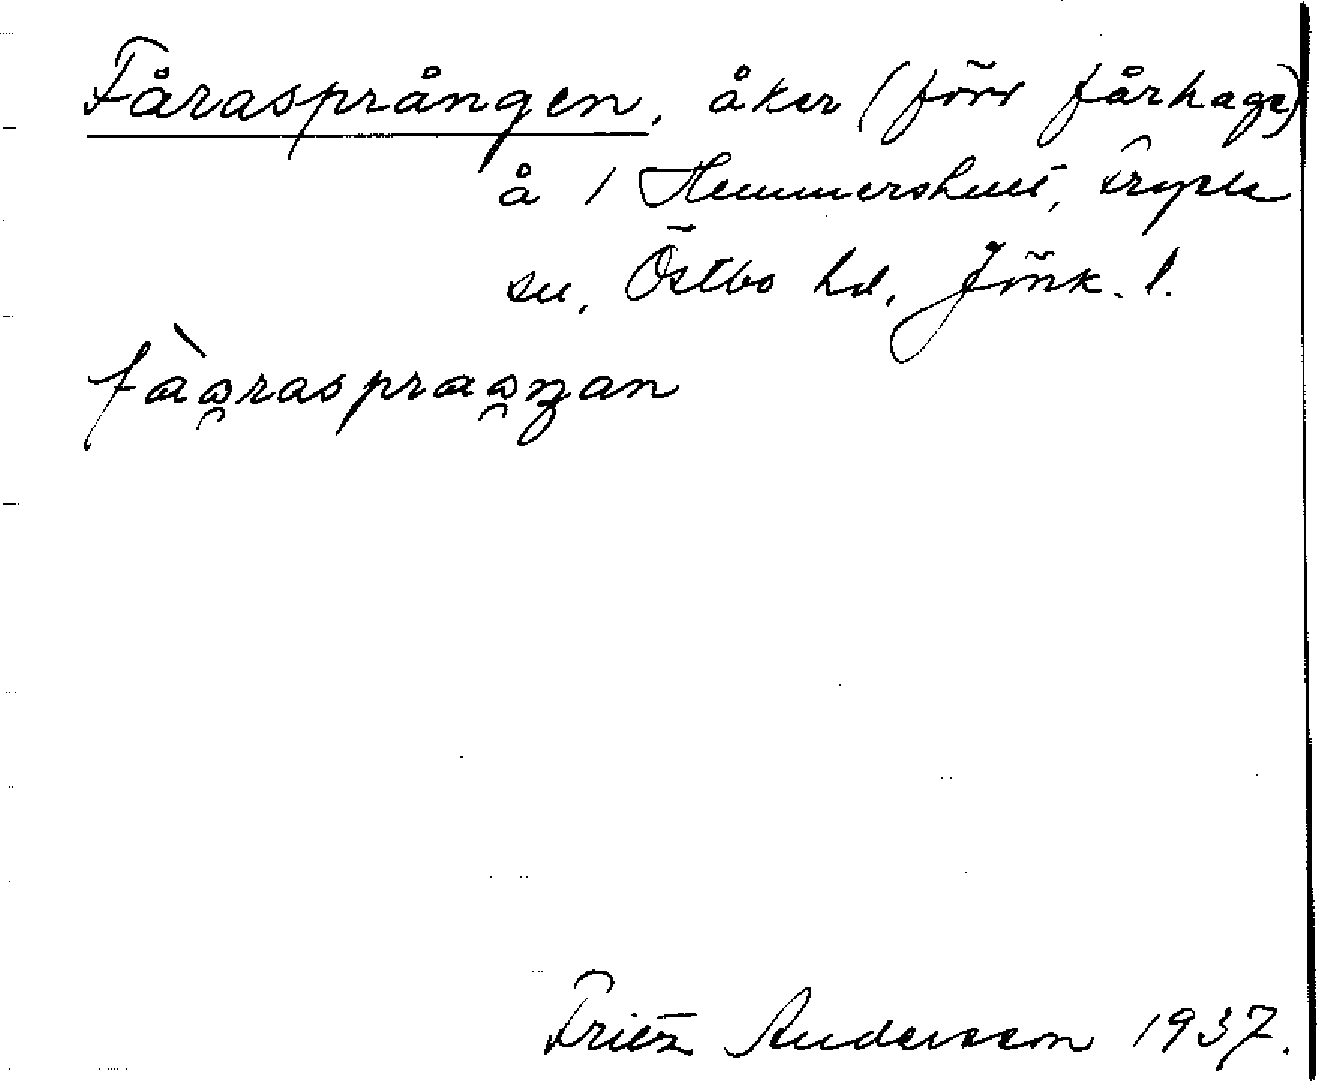 Fårasprången, åker (förr fårhage)
å 1 Hemmershult, Tryele
sn, Östbo hd, Jönk. l.
fàa̯raspraa̯ŋan
Fritz Andersson 1937.